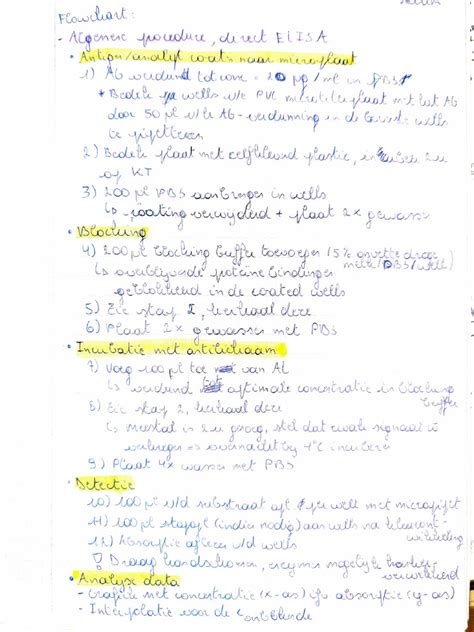 Flowchart:
- Algemene procedure, direct ELISA
• Antigen/analyt coats naar microplaat
1) Ab verdund tot conc = 20 µg/ml in PBS
* Bedek wells v/e PVC microtiterplaat met het Ab
door 50 µl v/d Ab-verdunning in de wells
te pipetteren
2) Bedek plaat met zelfklevend plastic, incuber 2u
op KT
3) 200 µl PBS aanbrengen in wells
↳ coating verwyderd + plaat 2x gewassen
• Blocking
4) 200 µl blocking buffer toevoegen (5%
PBS/well)
↳ overblyvende proteine bindingen
geblokkeerd in de coated wells
5) Zie stap 2, herhaal deze
6) Plaat 2x gewassen met PBS
• Incubatie met antilichaam
7) Voeg 100 µl toe van Ab
↳ verdund optimale concentratie in blocking
buffer
8) Zie stap 2, herhaal deze
↳ meestal is 2u genoeg, stel dat zwak signaal
→ overnacht by 4°C
9) Plaat 4x wassen met PBS
• Detectie
10) 100 µl v/d substraat per well met micropipet
11) 100 µl stopopl (indien nodig) aan wells na
12) Absorptie aflezen v/d wells
! Draag handschoenen, enzymen mogelyk
• Analyse data
- Grafiek met concentratie (x-as) absorptie (y-as)
- Interpolatie voor de